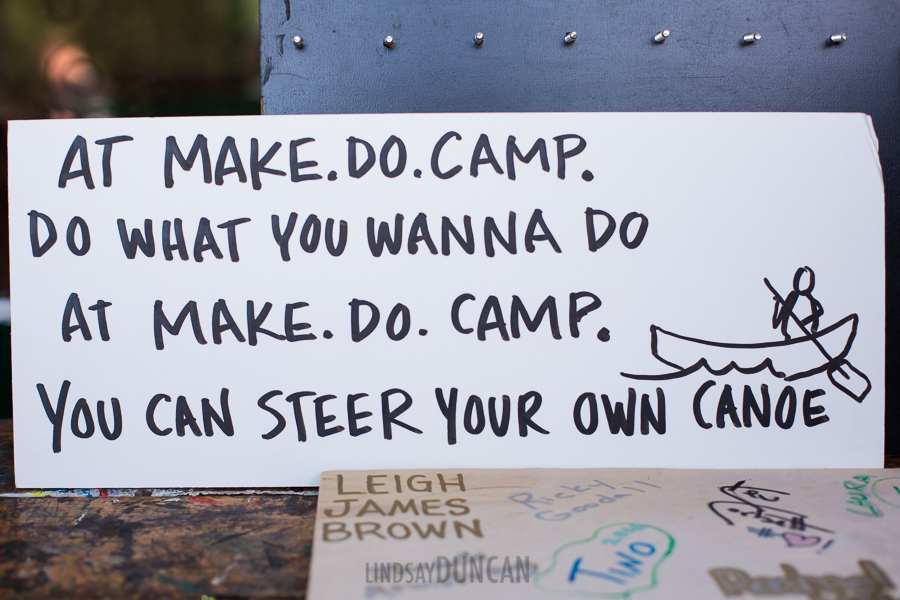 AT MAKE.DO.CAMP.
DO WHAT YOU WANNA DO
AT MAKE.DO. CAMP.
YOU CAN STEER YOUR OWN CANOE
LEIGH
JAMES
BROWN
Ricky
Goodall
TINO
LAURA
LINDSAYDUNCAN